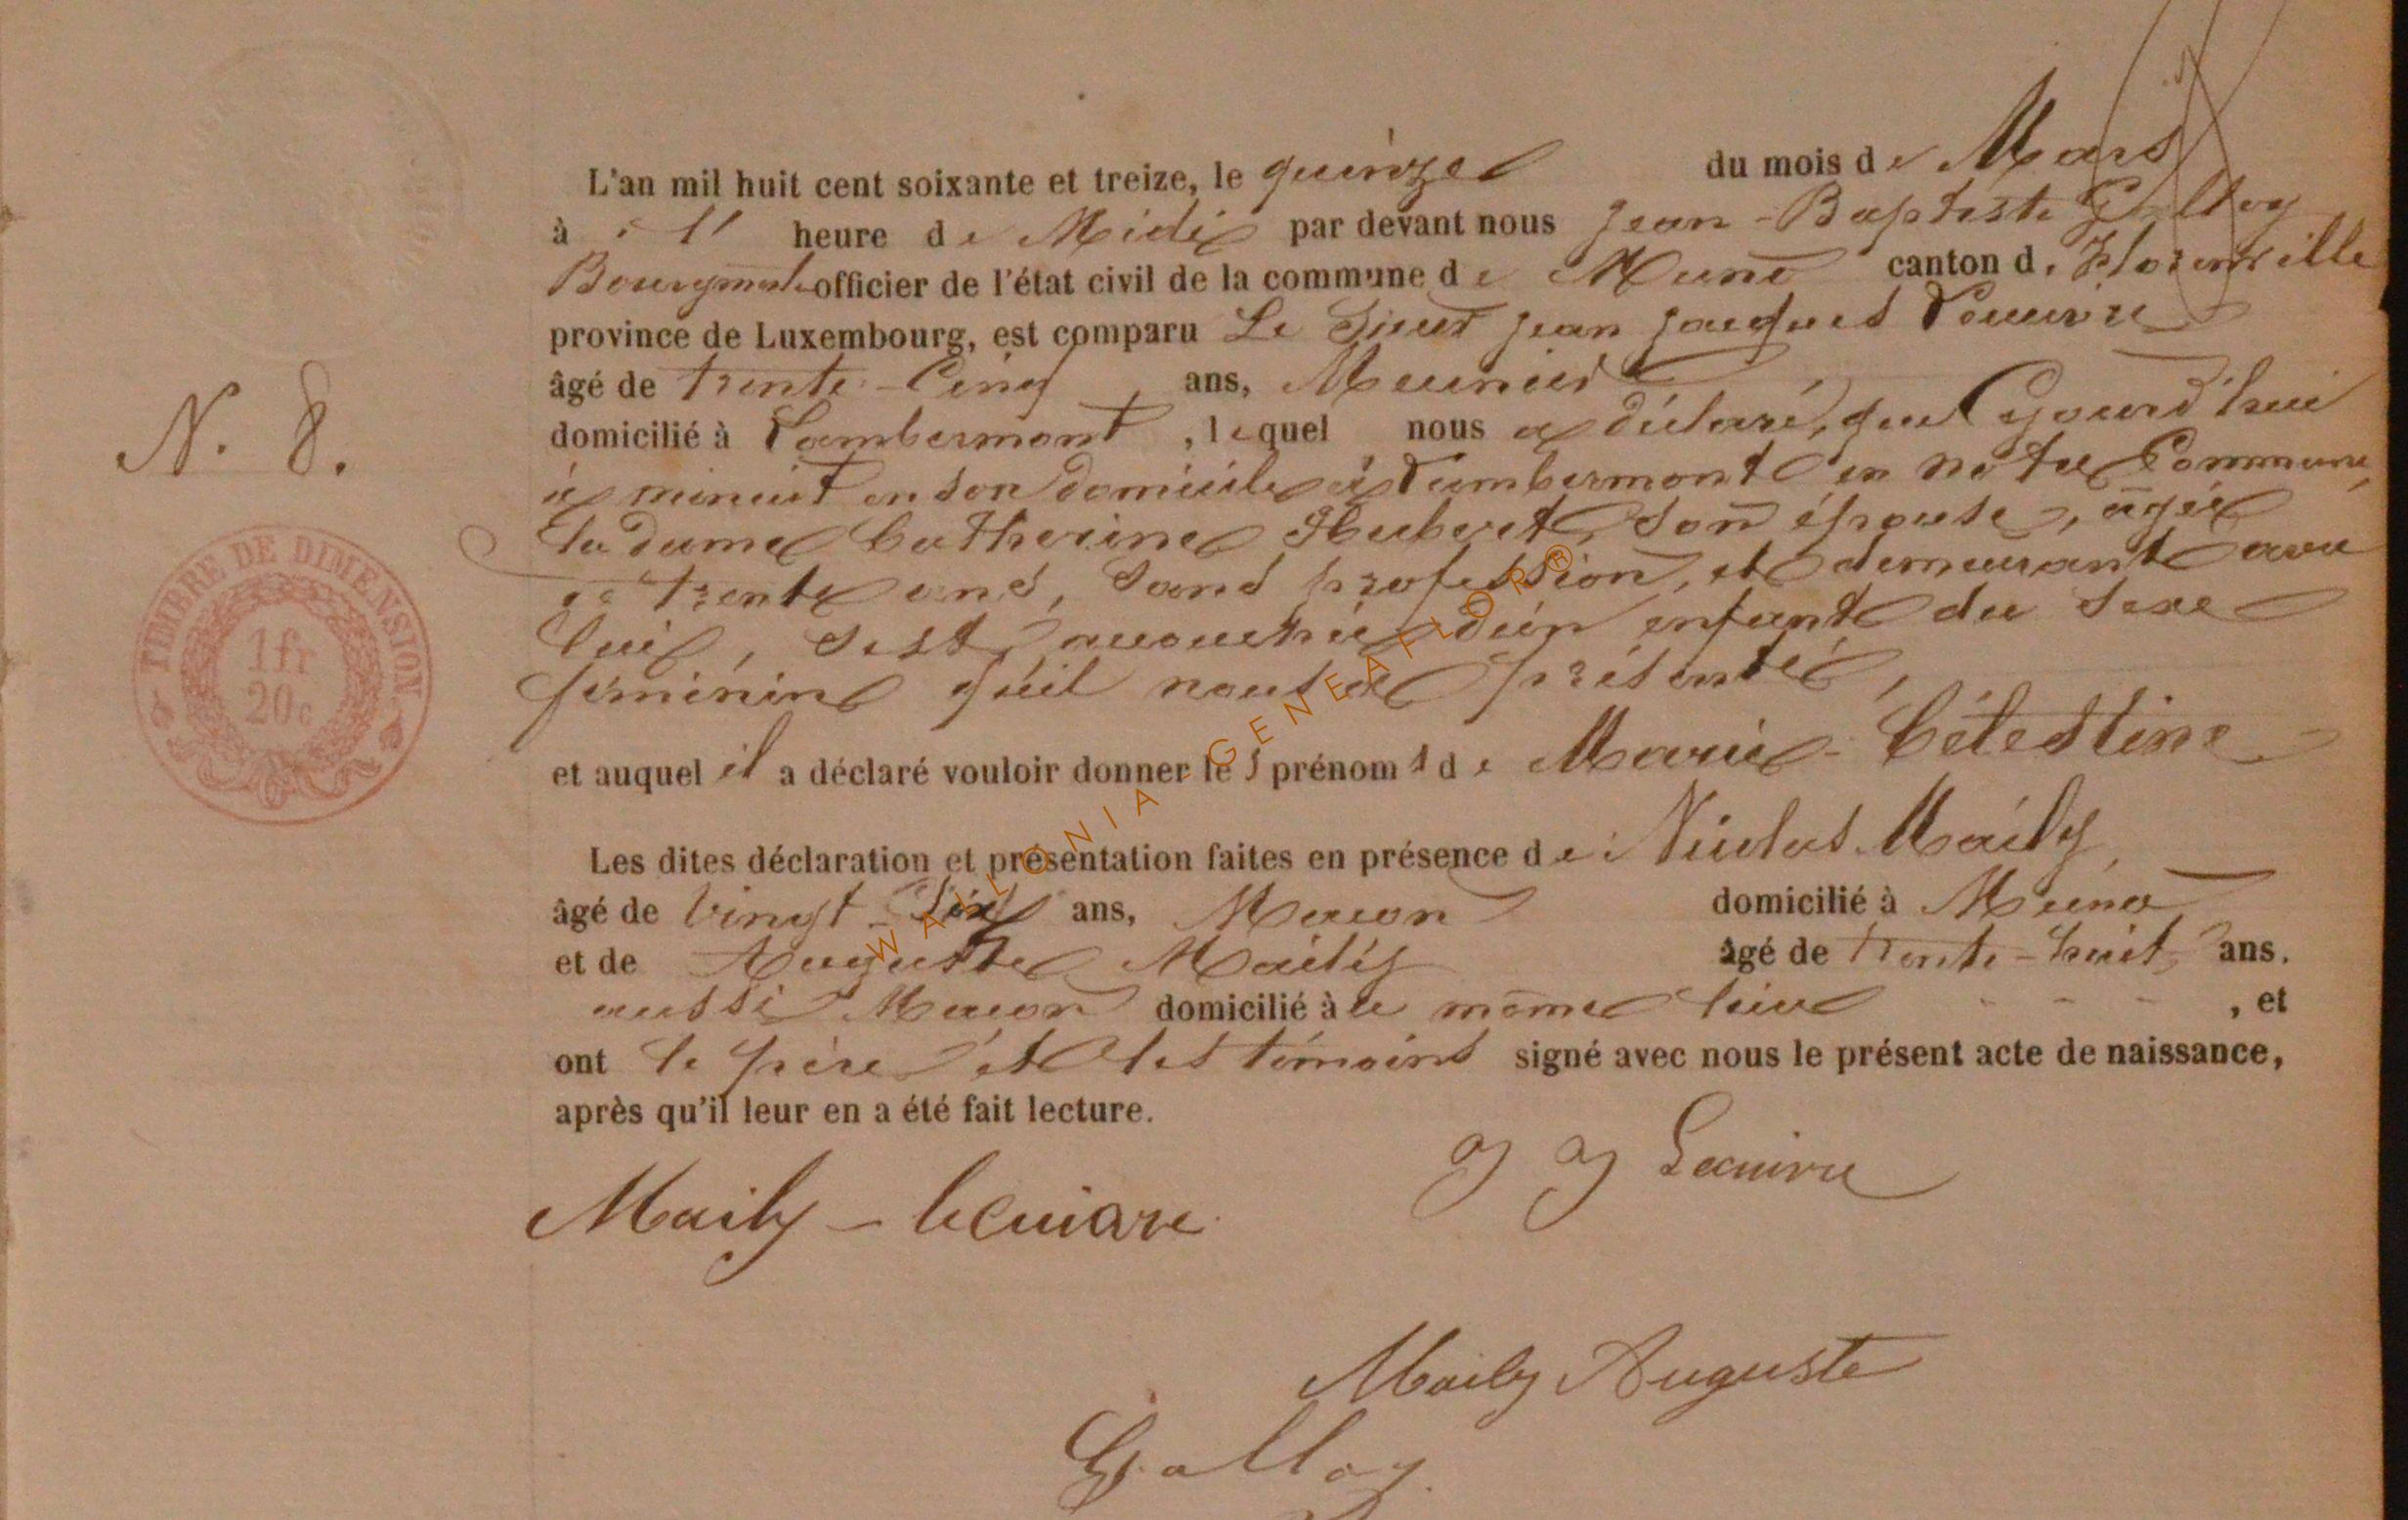 N. 8.
TIMBRE DE DIMENSION
1fr
20c
L'an mil huit cent soixante et treize, le quinze du mois de Mars
à l' heure de Midi par devant nous Jean-Baptiste Galloy
Bourgmestre officier de l'état civil de la commune de Muno canton de Florenville
province de Luxembourg, est comparu Le Sieur Jean Jacques Lecuivre
âgé de trente-Cinq ans, Meunier
domicilié à Lambermont, lequel nous a déclaré, que Cejourd'hui
à minuit en son domicile à Lambermont en notre Commune,
la dame Catherine Hubert, son épouse, âgée
de trente ans, sans profession, et demeurant avec
lui, s'est accouchée d'un enfant du sexe
féminin qu'il nous a présenté,
et auquel il a déclaré vouloir donner les prénoms de Marie-Célestine
Les dites déclaration et présentation faites en présence de: Nicolas Maily,
âgé de vingt-six ans, Macon domicilié à Muno
et de Auguste Maily âgé de trente-huit ans,
aussi Macon domicilié à le même lieu - - - , et
ont le père et les témoins signé avec nous le présent acte de naissance,
après qu'il leur en a été fait lecture.
J J Lecuivre
Maily - lecuivre
Maily Auguste
Galloy
WALLONIA GENEAFLOR®